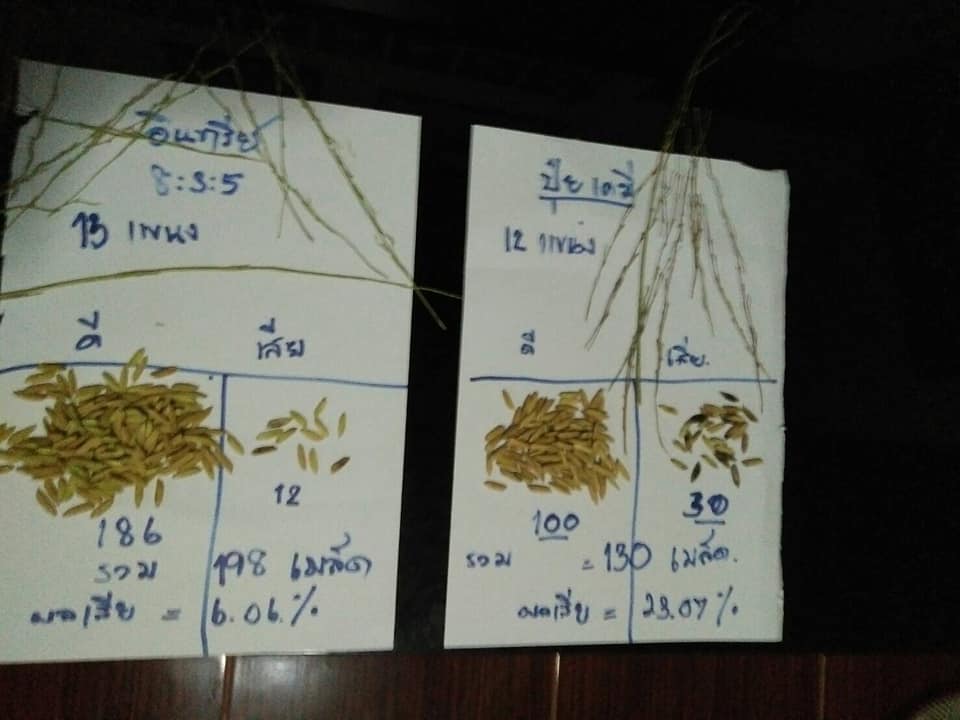 อินทรีย์
8:3:5
13 แขนง
ดี
เสีย
12
186
รวม 198 เมล็ด
ผลเสีย = 6.06.%
ปุ๋ยเคมี
12 แขนง
ดี
เสีย.
100
30
รวม = 130 เมล็ด.
ผลเสีย = 23.07%